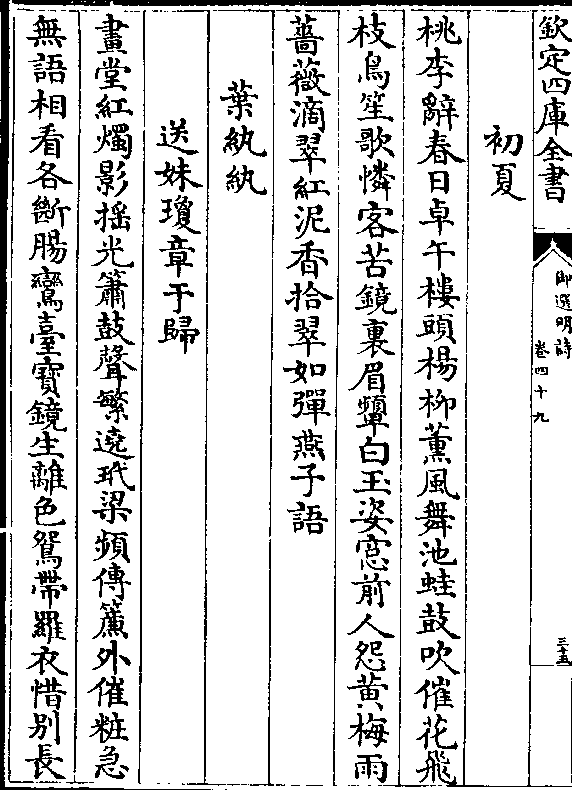 欽定四庫全書
御選明詩
卷四十九
三十五
初夏
桃李辭春日卓午樓頭楊柳薰風舞池蛙鼓吹催花飛
枝鳥笙歌憐客苦鏡裏眉顰白玉姿窓前人怨黄梅雨
薔薇滴翠紅泥香拾翠如彈燕子語
葉紈紈
送妹瓊章于歸
畫堂紅燭影揺光簫鼓聲繁遶玳梁頻傳簾外催粧急
無語相看各斷腸鸞臺寶鏡生離色鴛帶羅衣惜别長